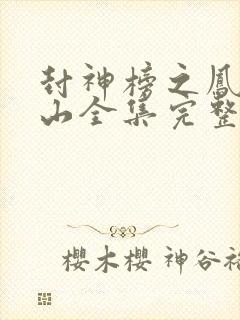 封神榜之鳳
山全集完整
櫻木櫻 神谷裕